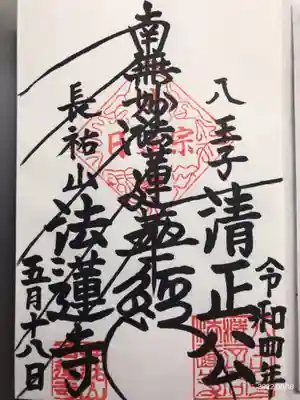 令和四年
八王子 清正公
南無妙法蓮華経
長祐山 法蓮寺
五月十八日